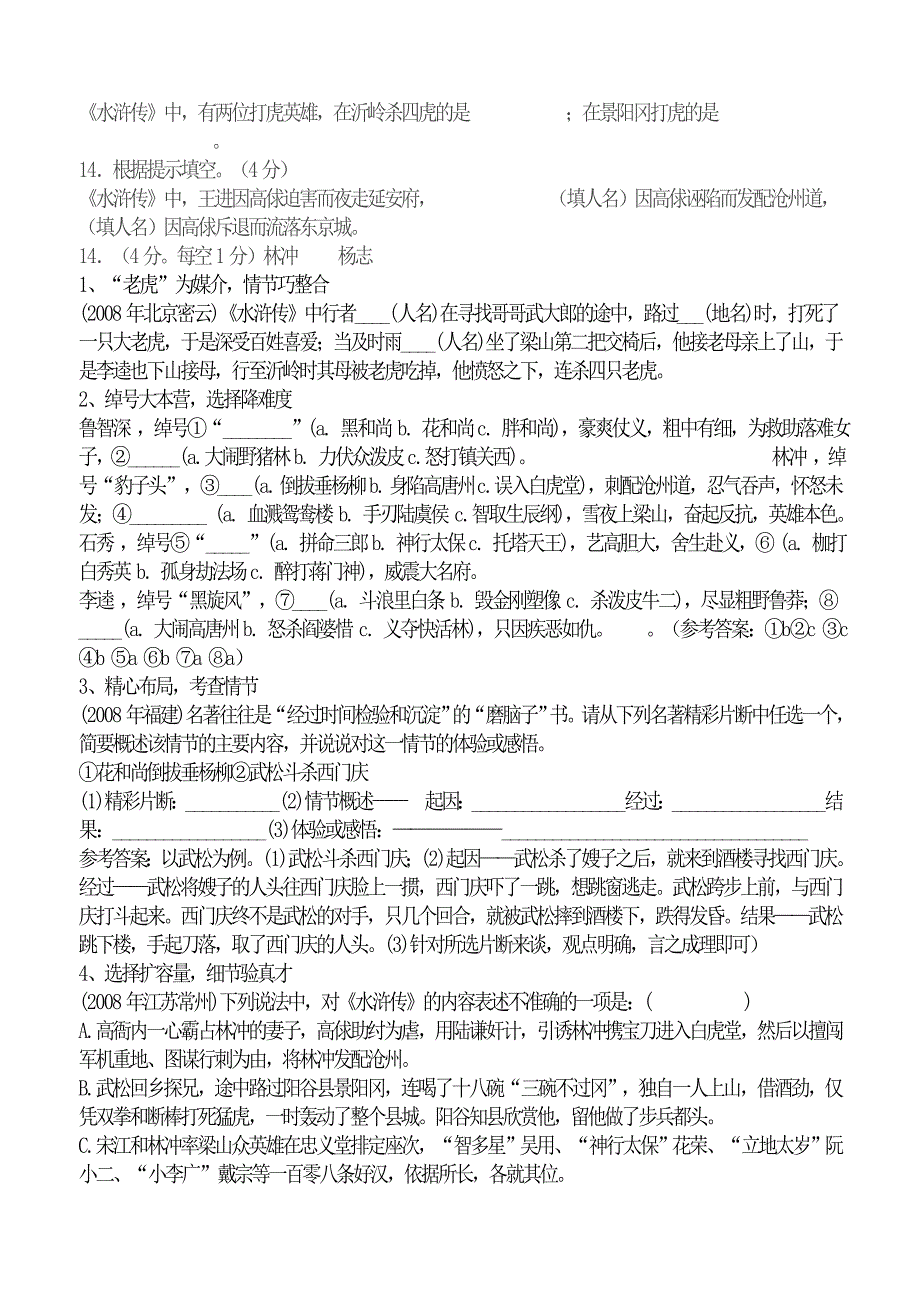 《水浒传》中，有两位打虎英雄，在沂岭杀四虎的是　　　　　　；在景阳冈打虎的是
。
14．根据提示填空。（4 分）
《水浒传》中，王进因高俅迫害而夜走延安府，　　　　　　　　（填人名）因高俅诬陷而发配沧州道，
（填人名）因高俅斥退而流落东京城。
14．（4 分。每空 1 分）林冲　　杨志
1、“老虎”为媒介，情节巧整合
(2008 年北京密云)《水浒传》中行者____(人名)在寻找哥哥武大郎的途中，路过___(地名)时，打死了
一只大老虎，于是深受百姓喜爱；当及时雨____(人名)坐了梁山第二把交椅后，他接老母亲上了山，于
是李逵也下山接母，行至沂岭时其母被老虎吃掉，他愤怒之下，连杀四只老虎。
2、绰号大本营，选择降难度
鲁智深 ，绰号①“________”(a. 黑和尚 b. 花和尚 c. 胖和尚)，豪爽仗义，粗中有细，为救助落难女
子，②______(a. 大闹野猪林 b. 力伏众泼皮 c. 怒打镇关西)。　　　　　　　　　　林冲 ，绰
号“豹子头”，③____(a. 倒拔垂杨柳 b. 身陷高唐州 c. 误入白虎堂)，刺配沧州道，忍气吞声，怀怒未
发；④_________ (a. 血溅鸳鸯楼 b. 手刃陆虞侯 c. 智取生辰纲)，雪夜上梁山，奋起反抗，英雄本色。
石秀 ，绰号⑤“_____”(a. 拼命三郎 b. 神行太保 c. 托塔天王)，艺高胆大，舍生赴义，⑥ (a. 枷打
白秀英 b. 孤身劫法场 c. 醉打蒋门神)，威震大名府。
李逵 ，绰号“黑旋风”，⑦____(a. 斗浪里白条 b. 毁金刚塑像 c. 杀泼皮牛二)，尽显粗野鲁莽；⑧
_____(a. 大闹高唐州 b. 怒杀阎婆惜 c. 义夺快活林)，只因疾恶如仇。　　。（参考答案：①b②c ③c
④b ⑤a ⑥b ⑦a ⑧a）
3、精心布局，考查情节
(2008 年福建)名著往往是“经过时间检验和沉淀”的“磨脑子”书。请从下列名著精彩片断中任选一个，
简要概述该情节的主要内容，并说说对这一情节的体验或感悟。
①花和尚倒拔垂杨柳②武松斗杀西门庆
(1)精彩片断：___________(2)情节概述——　起因：__________________经过：__________________结
果：__________________(3)体验或感悟：——————____________________________________
参考答案：以武松为例。(1)武松斗杀西门庆；(2)起因——武松杀了嫂子之后，就来到酒楼寻找西门庆。
经过——武松将嫂子的人头往西门庆脸上一掼，西门庆吓了一跳，想跳窗逃走。武松跨步上前，与西门
庆打斗起来。西门庆终不是武松的对手，只几个回合，就被武松摔到酒楼下，跌得发昏。结果——武松
跳下楼，手起刀落，取了西门庆的人头。(3)针对所选片断来谈，观点明确，言之成理即可)
4、选择扩容量，细节验真才
(2008 年江苏常州)下列说法中，对《水浒传》的内容表述不准确的一项是：(　　　　　　)
A. 高衙内一心霸占林冲的妻子，高俅助纣为虐，用陆谦奸计，引诱林冲携宝刀进入白虎堂，然后以擅闯
军机重地、图谋行刺为由，将林冲发配沧州。
B. 武松回乡探兄，途中路过阳谷县景阳冈，连喝了十八碗“三碗不过冈”，独自一人上山，借酒劲，仅
凭双拳和断棒打死猛虎，一时轰动了整个县城。阳谷知县欣赏他，留他做了步兵都头。
C. 宋江和林冲率梁山众英雄在忠义堂排定座次，“智多星”吴用、“神行太保”花荣、“立地太岁”阮
小二、“小李广”戴宗等一百零八条好汉，依据所长，各就其位。